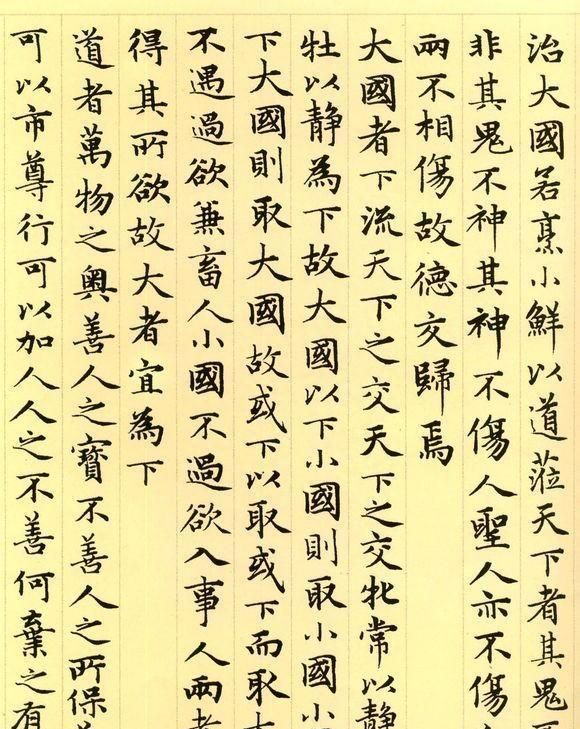 治大國若烹小鮮以道蒞天下者其鬼
非其鬼不神其神不傷人聖人亦不傷
兩不相傷故德交歸焉
大國者下流天下之交天下之交牝常以静
牡以静為下故大國以下小國則取小國小
下大國則取大國故或下以取或下而取
不遇過欲兼畜人小國不過欲入事人兩者
得其所欲故大者宜為下
道者萬物之奥善人之寶不善人之所保
可以市尊行可以加人人之不善何棄之有